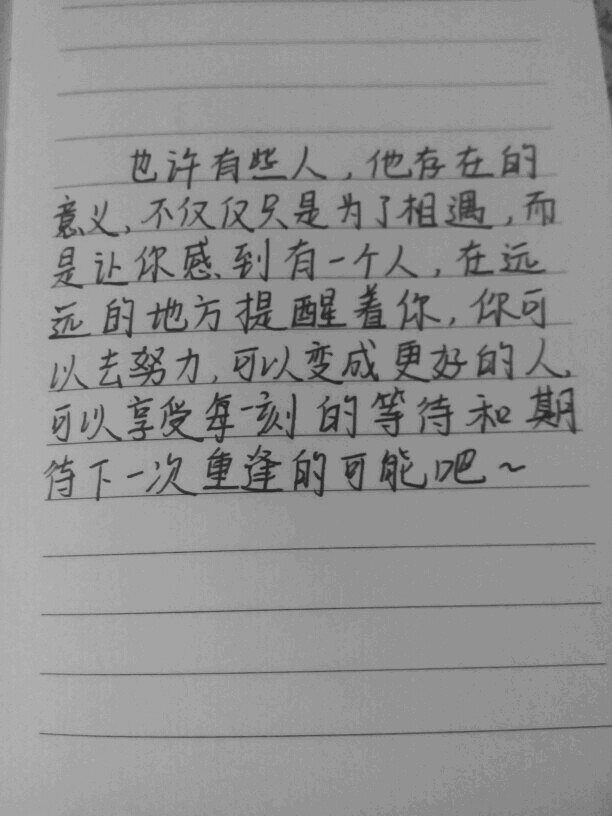 也许有些人，他存在的
意义，不仅仅只是为了相遇，而
是让你感到有一个人，在远
远的地方提醒着你，你可
以去努力，可以变成更好的人，
可以享受每一刻的等待和期
待下一次重逢的可能吧～